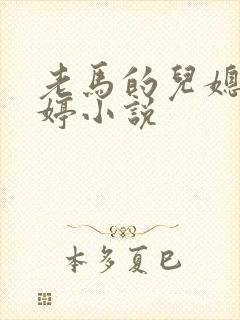 老馬的兒媳
婷小說
本多夏巳